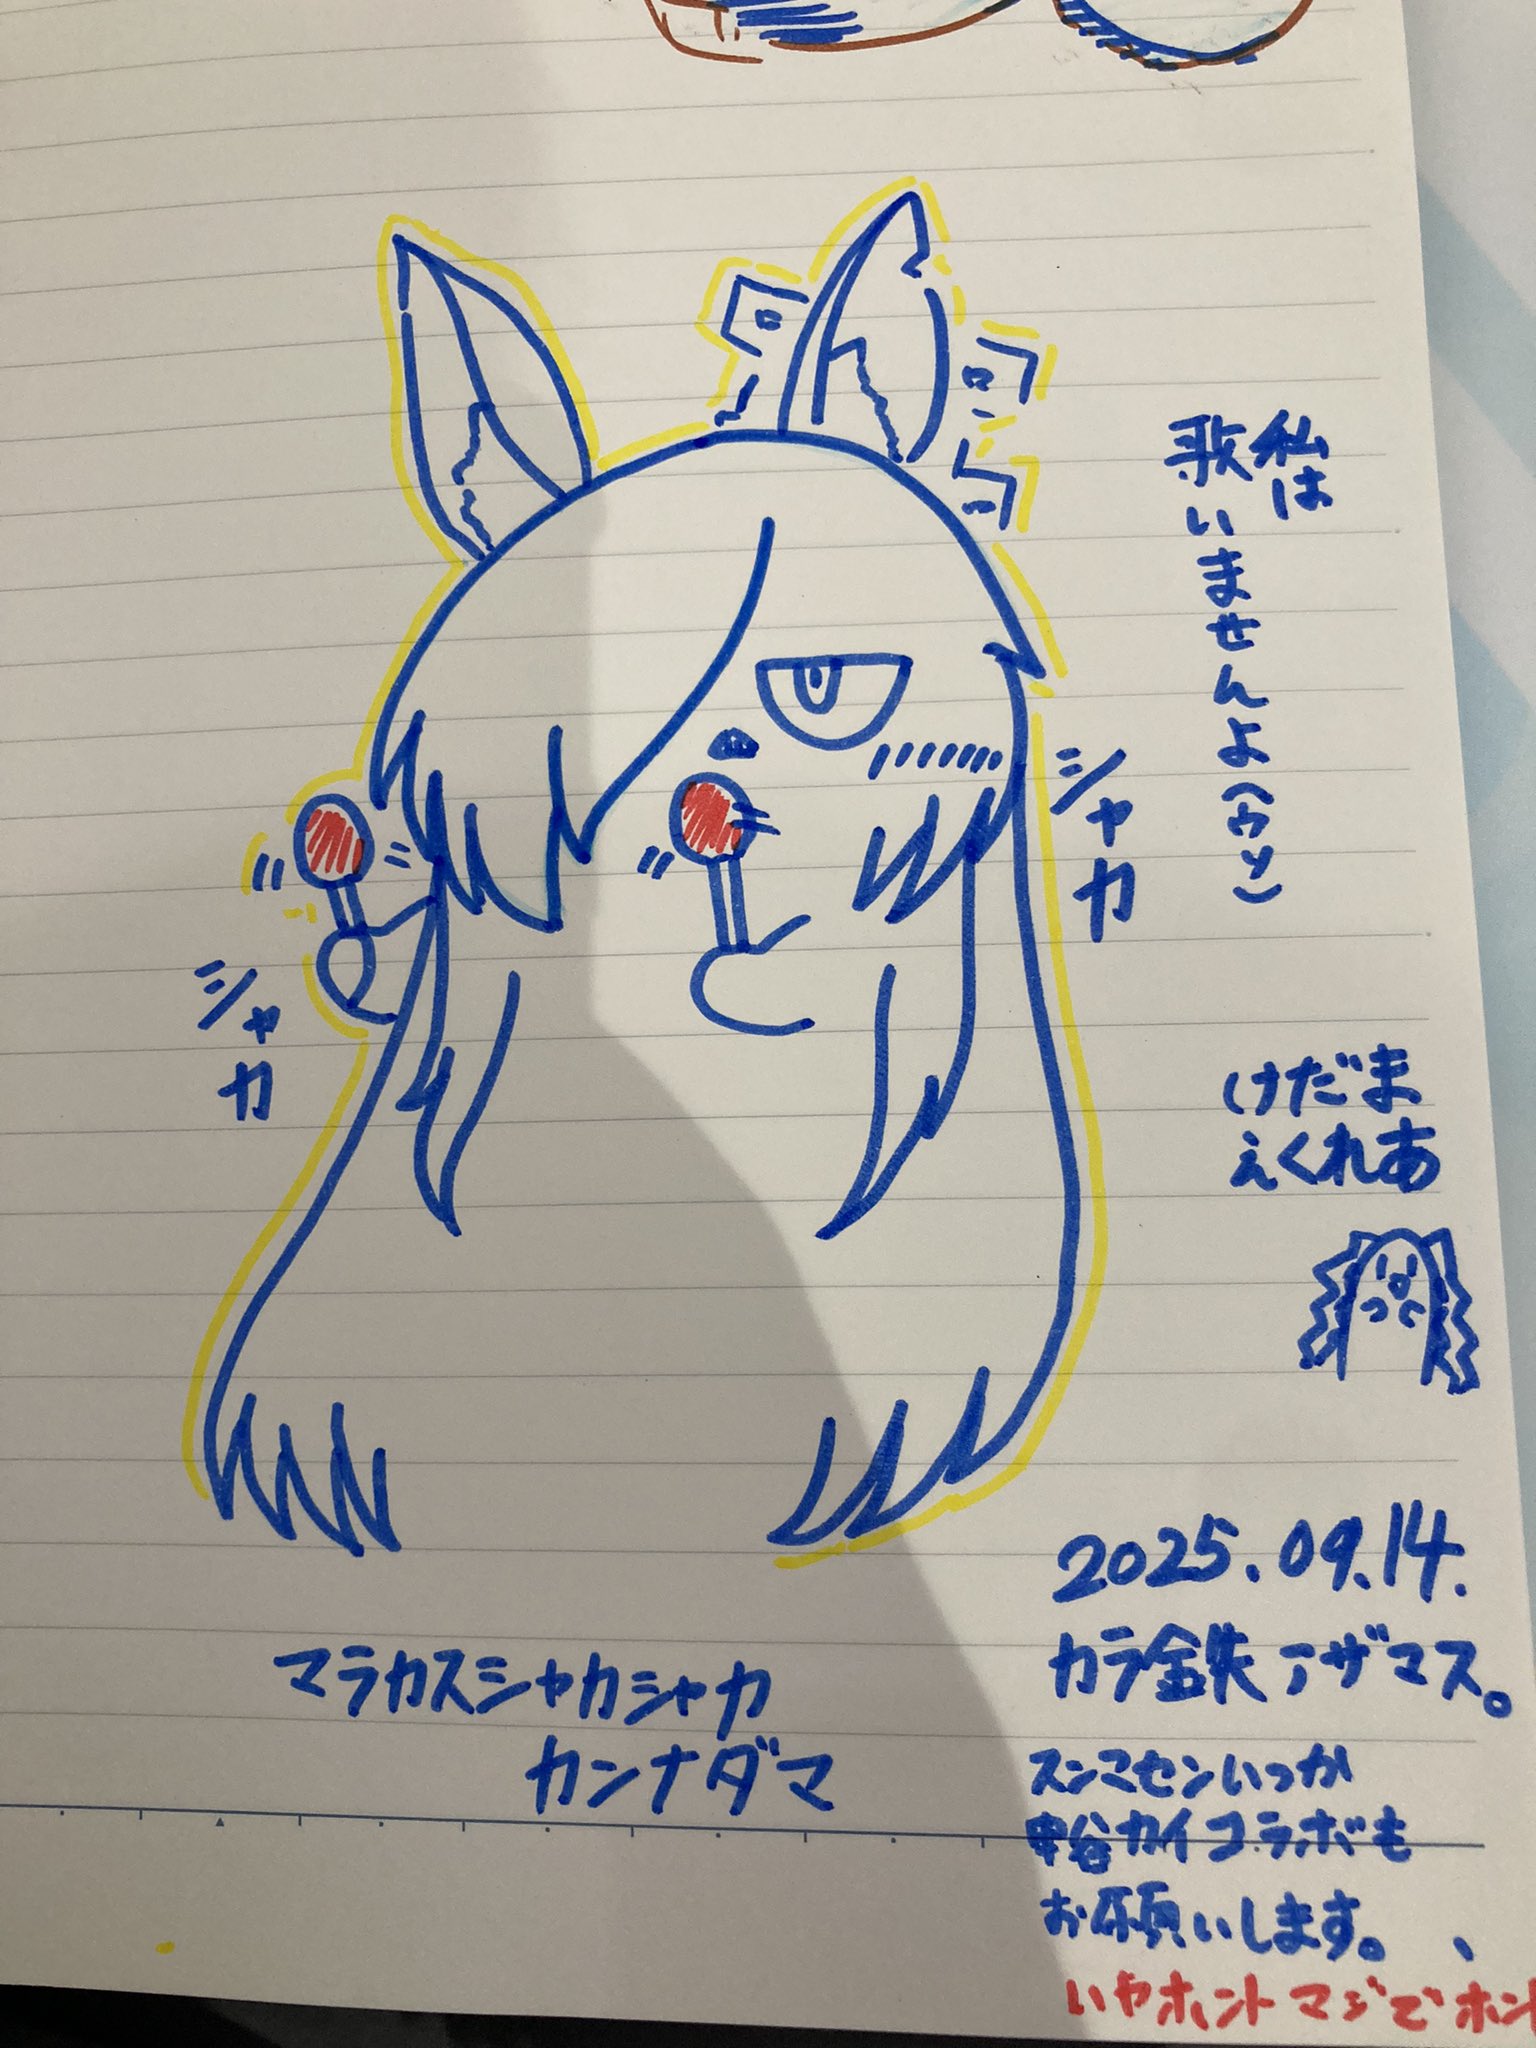 私は
歌いませんよ(ウソ)
シャカ
シャカ
けだま
えくれあ
2025.09.14.
カラ鉄アザマス。
マラカスシャカシャカ
カンナダマ
スンマセンいつか
中谷カイコラボも
お願いします。、
いやホントマジでホント